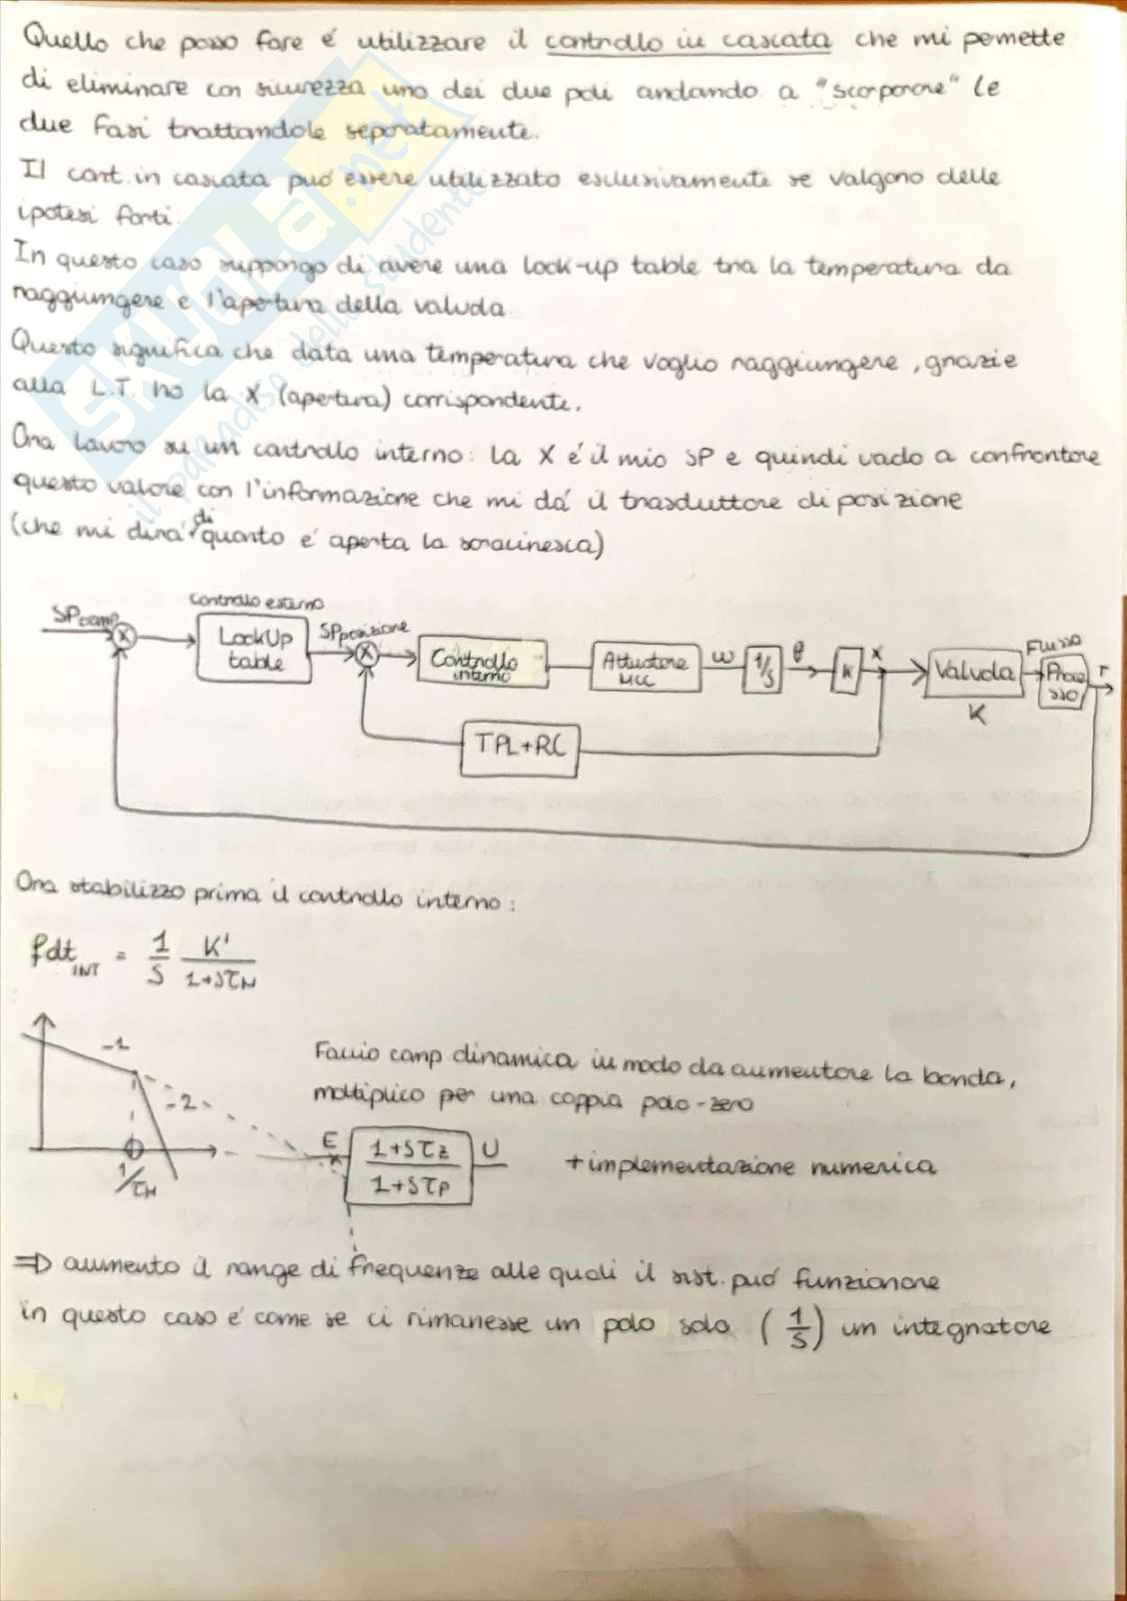 Quello che posso fare é utilizzare il controllo in cascata che mi pemette
di eliminare con sicurezza uno dei due poli andando a "scorporare" le
due fasi trattandole separatamente.
Il cont. in cascata puó essere utilizzato esclusivamente se valgono delle
ipotesi forti.
In questo caso suppongo di avere una look-up table tra la temperatura da
raggiungere e l'apertura della valvola
Questo significa che data una temperatura che voglio raggiungere, grazie
alla L.T. ho la X (apertura) corrispondente.
Ora lavoro su un controllo interno: la X é il mio SP e quindi vado a confrontare
questo valore con l'informazione che mi dá il trasduttore di posizione
(che mi dirá di quanto é aperta la saracinesca)
Controllo esterno
SPtemp
X
LookUp
table
SPposizione
X
Controllo
interno
Attuatore
MCC
ω
1/s
θ
K
X
Valvola
K
Flusso
Proce
sso
T
TPL+RC
Ora stabilizzo prima il controllo interno:
fdt INT = 1/S K'/(1+Sτм)
-1
-2
1/τм
Faccio comp dinamica in modo da aumentare la banda,
moltiplico per una coppia polo-zero
E
1+Sτz
1+Sτp
U
+implementazione numerica
⇒ aumento il range di frequenze alle quali il sist. puó funzionare
in questo caso é come se ci rimanesse un polo solo (1/S) un integratore
skuola.net
il paradiso dello studente